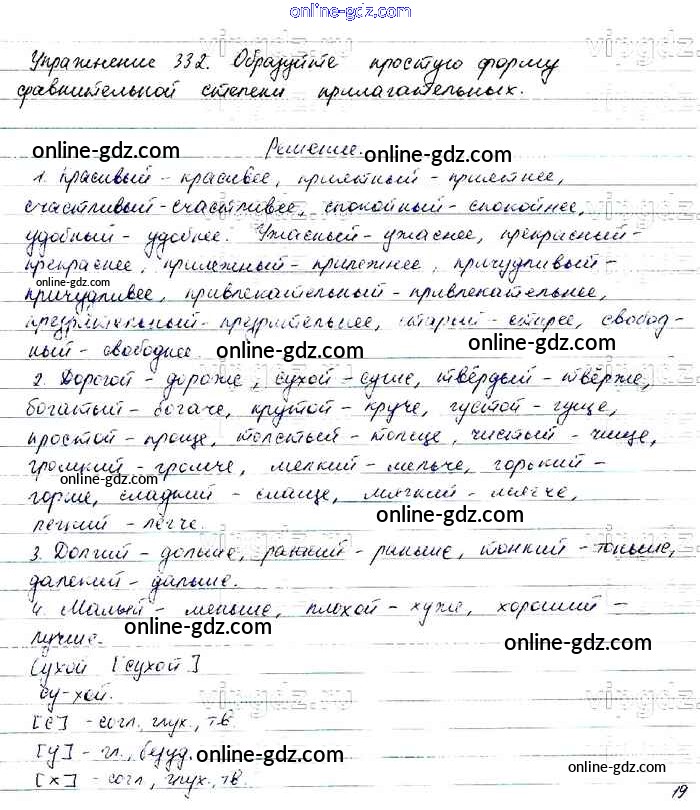 online-gdz.com
Упражнение 332. Образуйте простую форму
сравнительной степени прилагательных.
Решение.
online-gdz.com online-gdz.com
1. Красивый - красивее, приятный - приятнее,
счастливый - счастливее, спокойный - спокойнее,
удобный - удобнее. Ужасный - ужаснее, прекрасный -
прекраснее, прилежный - прилежнее, причудливый -
причудливее, привлекательный - привлекательнее,
презрительный - презрительнее, старый - старее, свобод-
ный - свободнее.
2. Дорогой - дороже, сухой - суше, твёрдый - твёрже,
богатый - богаче, крутой - круче, густой - гуще,
простой - проще, толстый - толще, чистый - чище,
громкий - громче, мелкий - мельче, горький -
горше, сладкий - слаще, мягкий - мягче,
легкий - легче.
3. Долгий - дольше, ранний - раньше, тонкий - тоньше,
далекий - дальше.
4. Малый - меньше, плохой - хуже, хороший -
лучше.
Сухой [сухой]
Су-хой.
[с] - согл., глух., тв.
[у] - гл., безуд.
[х] - согл., глух., тв.
19